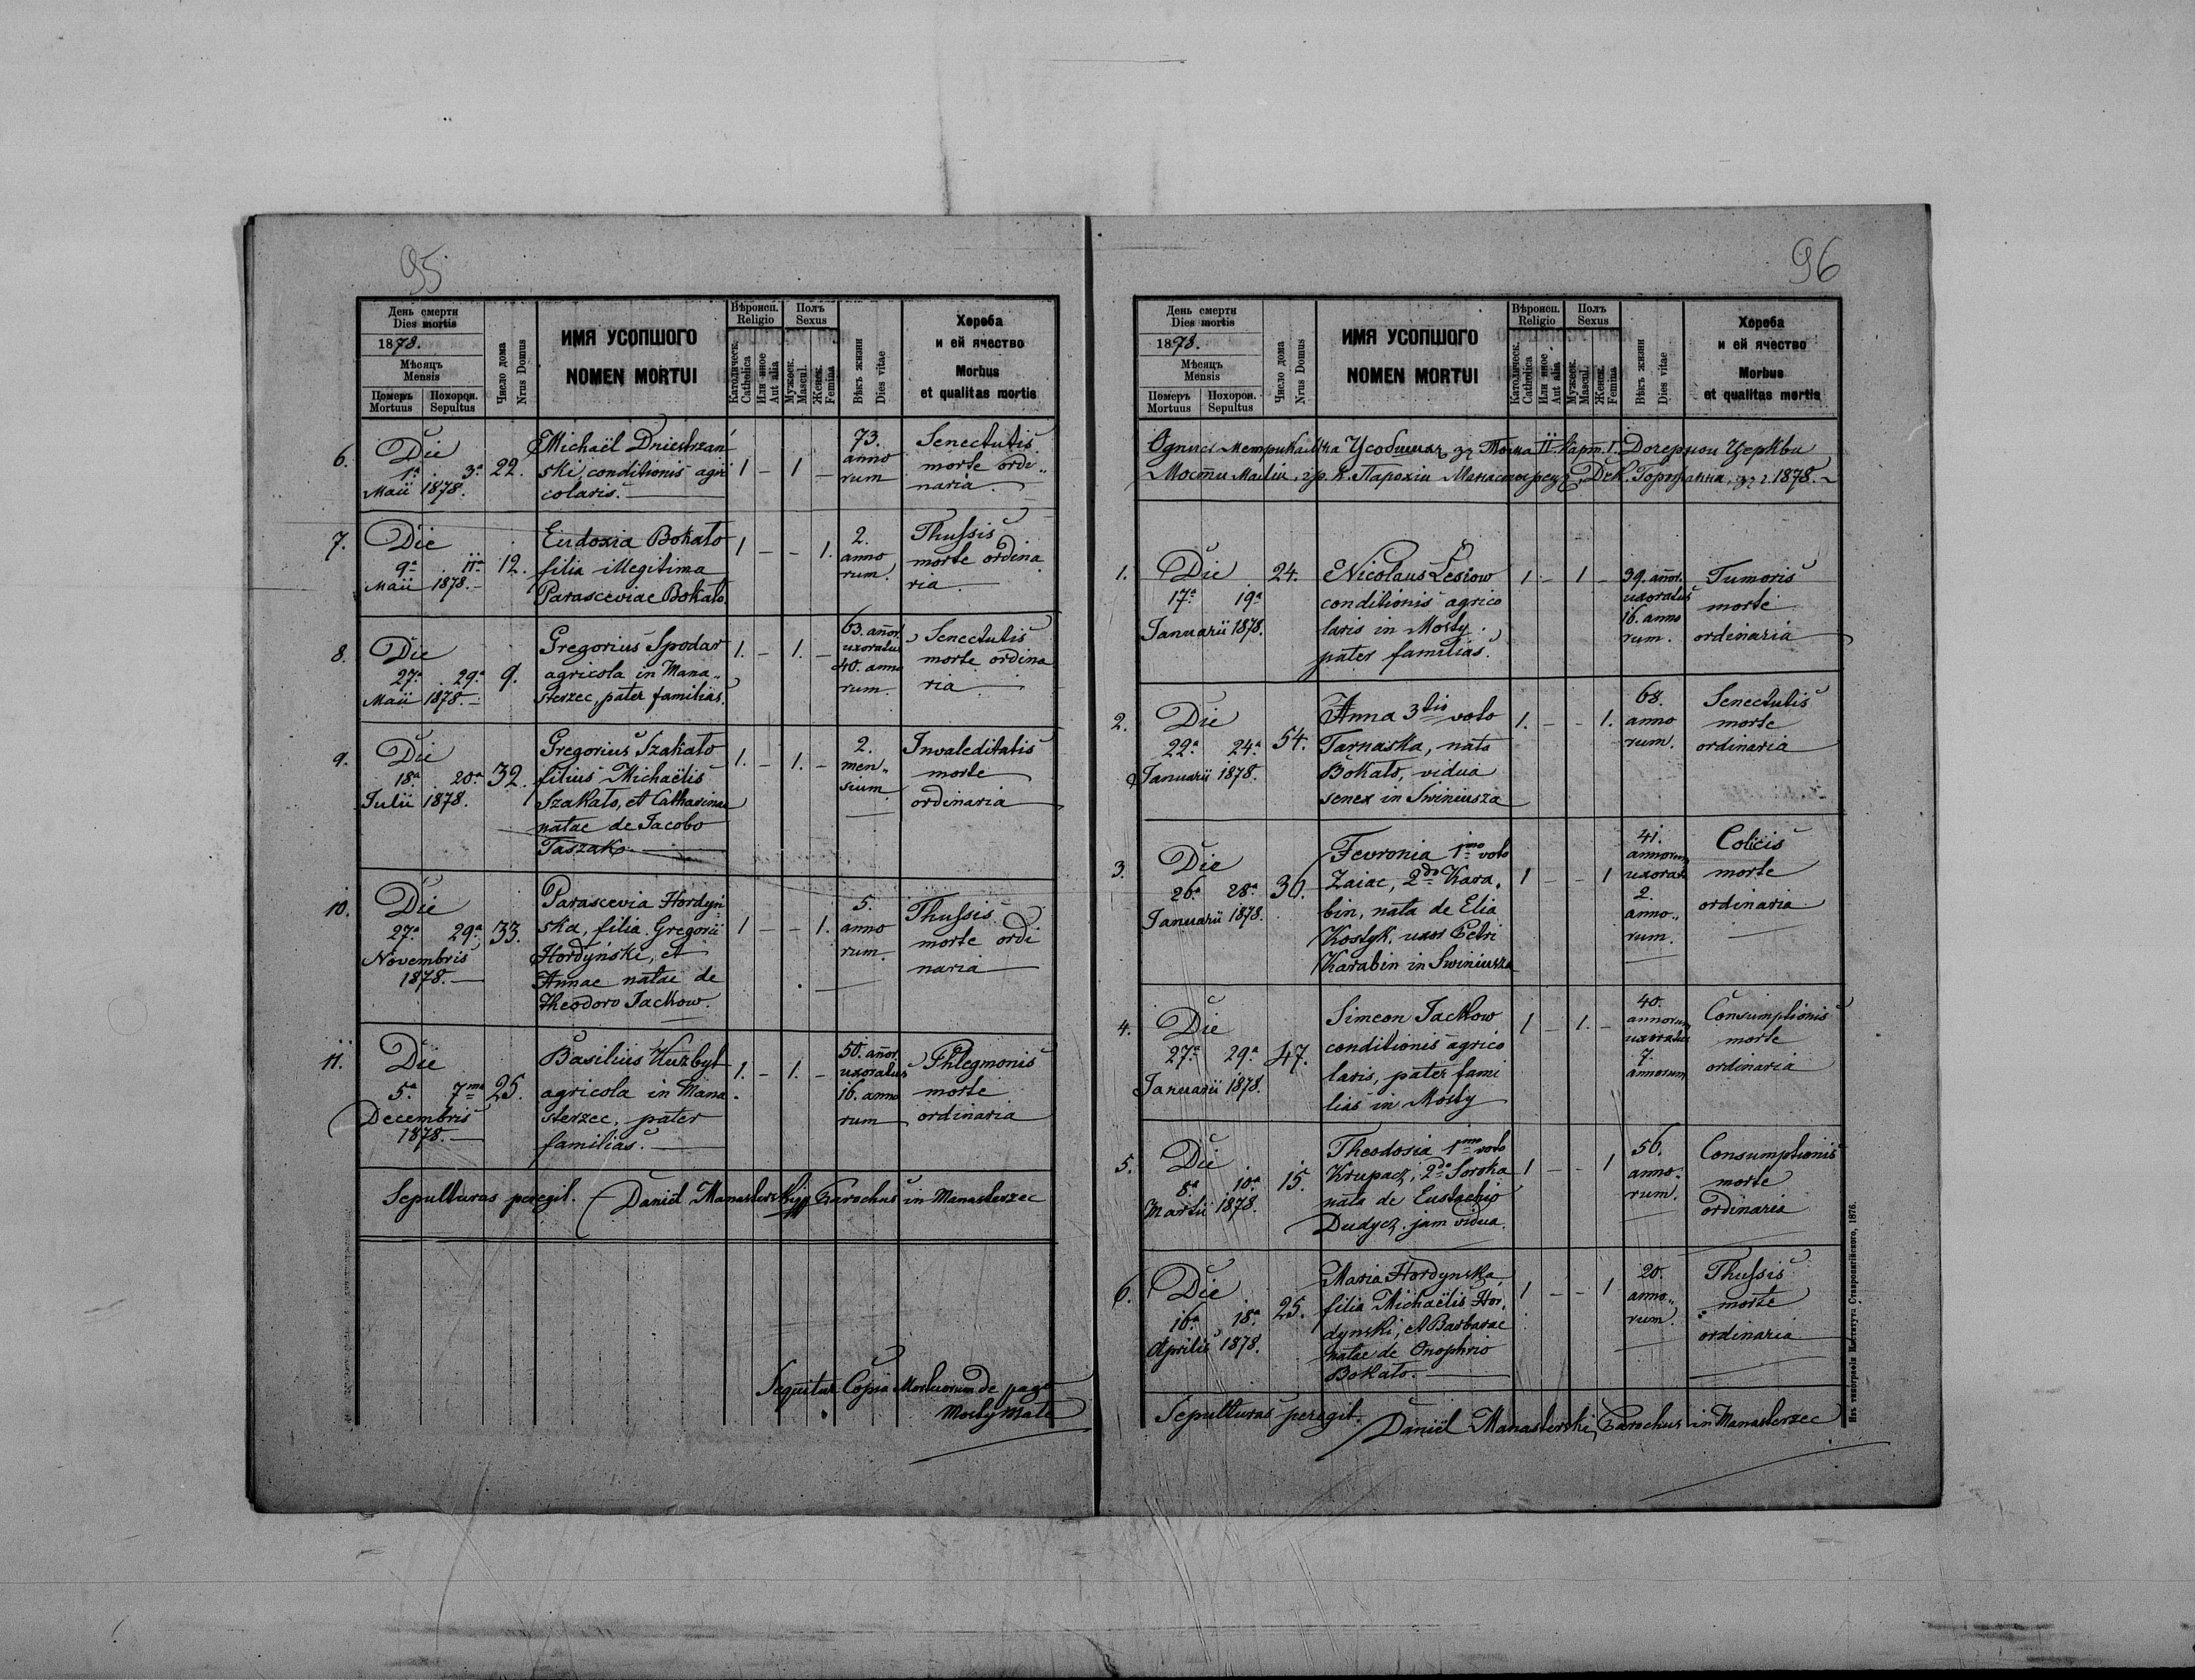 95
День смерти
Dies mortis
1878.
Мѣсяцъ
Mensis
Померъ
Mortuus
Похорон.
Sepultus
Число дома
Nrus Domus
ИМЯ УСОПШОГО
NOMEN MORTUI
Вѣроисп.
Religio
Католическ.
Catholica
Или иное
Aut alia
Полъ
Sexus
Мужеск.
Mascul.
Женск.
Femina
Вѣкъ жизни
Dies vitae
Хороба
и ей ячество
Morbus
et qualitas mortis
6. Die
1ª 3ª
Maii 1878.
22.
Michaël Dniestrzań
ski, conditionis agri
colaris.
1 – 1 –
73.
anno
rum
Senectutis
morte ordi„
naria
7. Die
9ª 11ª
Maii 1878.
12.
Eudoxia Bokało
filia illegitima
Parasceviae Bokało.
1 – – 1.
2.
anno
rum.
Thussis
morte ordina
ria
8. Die
27ª 29ª
Maii 1878.
9.
Gregorius Spodar
agricola in Mana„
sterzec, pater familias.
1. – 1. –
63. añor.
uxoratus
40. anno
rum.
Senectutis
morte ordina
ria
9. Die
18ª 20ª
Julii 1878.
32.
Gregorius Szakało
filius Michaëlis
Szakało, et Catharinae
natae de Jacobo
Taszako.
1. – 1. –
2.
men„
sium
Invaleditatis
morte
ordinaria
10. Die
27ª 29ª
Novembris
1878.
33.
Parascevia Hordyń
ska, filia Gregorii
Hordyński, et
Annae natae de
Theodoro Jackow.
1 – – 1.
5.
anno
rum.
Thussis
morte ordi
naria
11. Die
5ª 7ma
Decembris
1878.
25.
Basilius Kuzbyt
agricola in Mana
sterzec, pater
familias.
1. – 1. –
50. añor.
uxoratus
16. anno
rum
Phlegmonis
morte
ordinaria
Sepulturas peregit. Daniël Manasterski Parochus in Manasterzec
Sequitur Copia Mortuorum de pago
Mosty małe
96
День смерти
Dies mortis
1878.
Мѣсяцъ
Mensis
Померъ
Mortuus
Похорон.
Sepultus
Число дома
Nrus Domus
ИМЯ УСОПШОГО
NOMEN MORTUI
Вѣроисп.
Religio
Католическ.
Catholica
Или иное
Aut alia
Полъ
Sexus
Мужеск.
Mascul.
Женск.
Femina
Вѣкъ жизни
Dies vitae
Хороба
и ей ячество
Morbus
et qualitas mortis
Усобшихъ зъ Тома II Карт. 1. Дочерной Церкви
Мости Малiи, гр. к. Парохіи Манастерецъ, Дек. зъ г. 1878.
1. Die
17ª 19ª
Januarii 1878.
24.
Nicolaus Lesiow
conditionis agrico
laris in Mosty
pater familias.
1 – 1 –
39. añor.
uxoratus
16. anno
rum.
Tumoris
morte
ordinaria
2. Die
22ª 24ª
Januarii 1878.
54.
Anna 3tio voto
Tarnaska, nata
Bokało, vidua
senex in Swiniusza
1. – – 1.
68.
anno
rum.
Senectutis
morte
ordinaria
3. Die
26ª 28ª
Januarii 1878.
36.
Fevronia 1mo voto
Zaiac, 2do Kara„
bin, nata de Elia
Kostyk, uxor Petri
Karabin in Swiniusza
1 – – 1
41.
annorum
uxorata
2.
anno„
rum.
Colicis
morte
ordinaria
4. Die
27ª 29ª
Januarii 1878.
47.
Simeon Jackow
conditionis agrico
laris, pater fami
lias in Mosty
1 – 1. –
40.
annorum
uxoratus
7.
annorum
Consumptionis
morte
ordinaria
5. Die
8ª 10ª
Martii 1878.
15.
Theodosia 1mo voto
Krupacz, 2do Soroka
nata de Eustachio
Dudycz, jam vidua.
1 – – 1
56.
anno
rum.
Consumptionis
morte
ordinaria
6. Die
16ª 18ª
Aprilis 1878.
25.
Maria Hordynska,
filia Michaëlis Hor„
dynski, et Barbarae
natae de Onophrio
Bokało.
1 – – 1
20.
anno„
rum.
Thussis
morte
ordinaria
Sepulturas peregit. Daniël Manasterski, Parochus in Manasterzec
Изъ типографіи Института Ставропигійского, 1876.